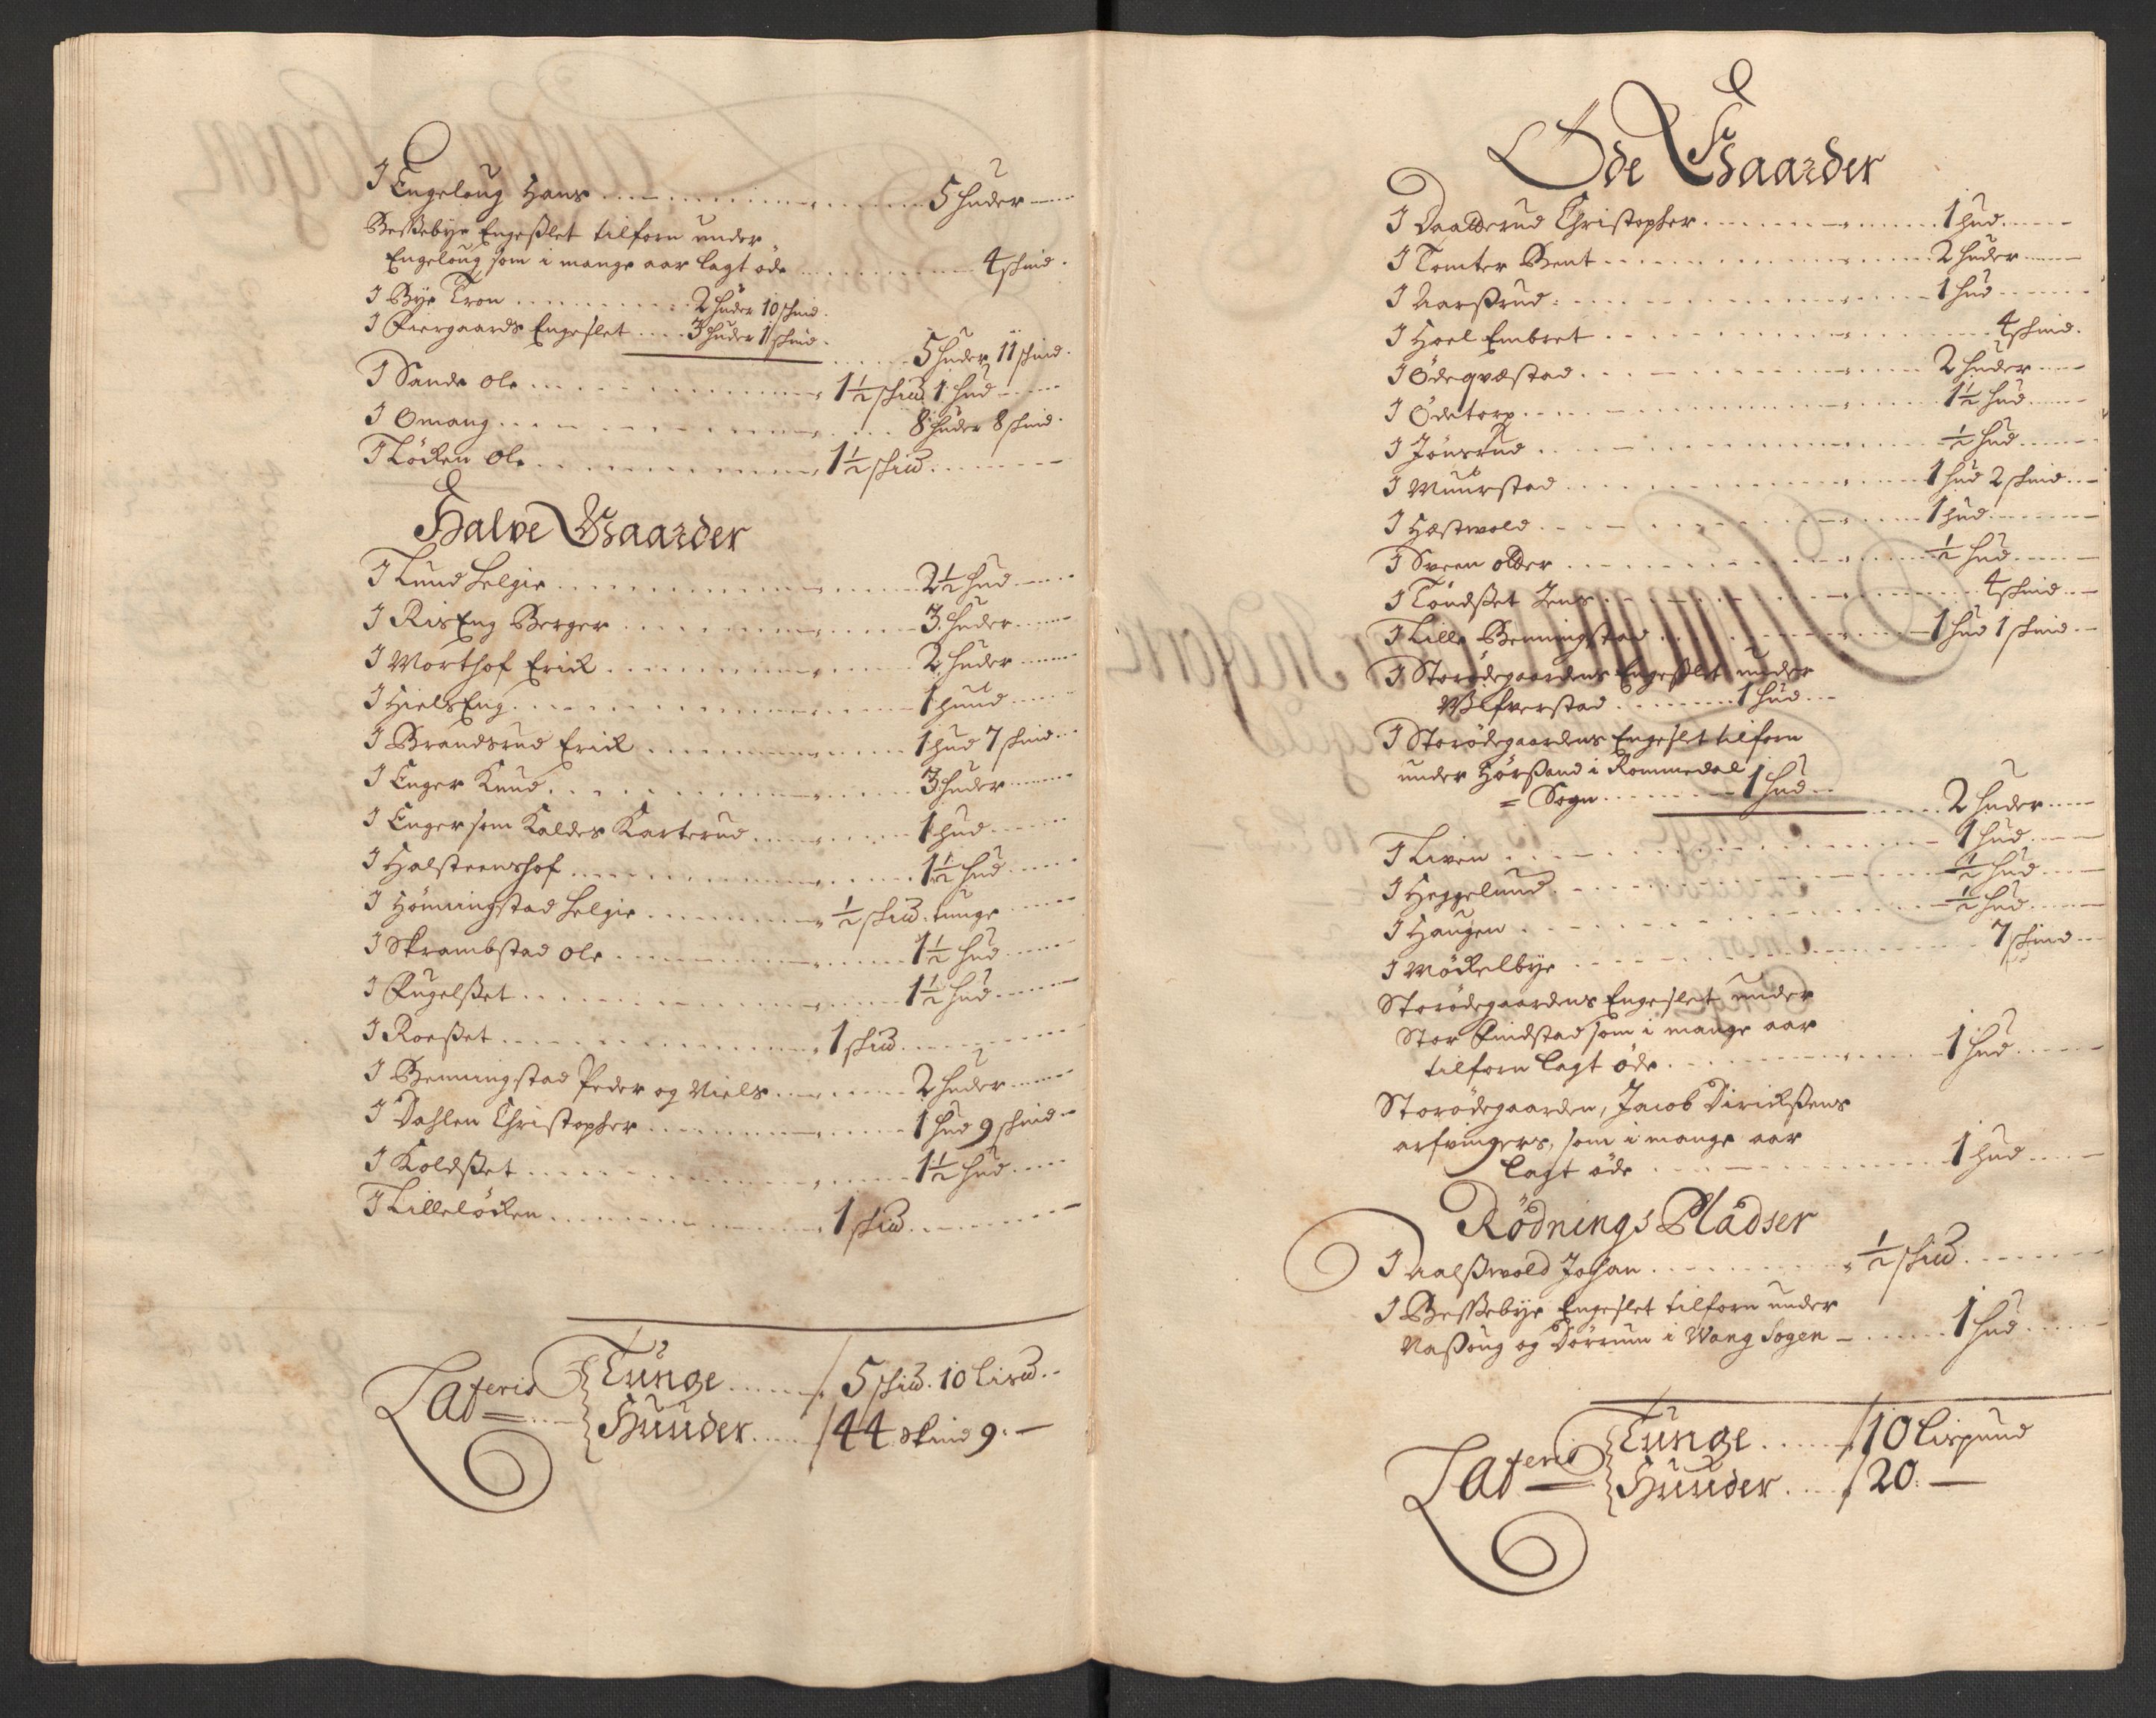 I Engeloug Hans 5 huder
Beßebye Engeßlet tilforn under
Engeloug som i mange aar lagt öde 4 skind.
I Bye Tron 2 huder 10 skind.
I Fiergaards Engeslet 3 huder 1 skind.
5 huder 11 skind.
I Sande Ole 1½ skiu 1 hud
I Omang 8 huder 8 skind.
I Löken Ole 1½ skiu
Halve Gaarder
I Lund Helgie 2½ hud
I RisEng Berger 3 huder
I Worthof Erick 2 huder
I HielsEng 1 huud
I Brandsrud Erick 1 hud 7 skind
I Enger Knud 3 huder
I Enger som Kaldes Karterud 1 hud
I Halsteenshof 1½ hud
I Hömmingstad Helgie ½ skiu. tunge
I Skrambstad Ole 1½ hud
I Fugelßet 1½ hud
I Roeßet 1 skiu
I Benningstad Peder og Niels 2 huder
I Dahlen Christopher 1 hud 9 skind
I Koldßet 1½ hud
I Lillelöken 1 skiu
Lateris Tunge 5 skiu. 10 Lisu.
Huuder 44 skind 9.
Öde Gaarder
I Daalderud Christopher 1 hud
I Tomter Bent 2 huder
I Aarßrud 1 hud
I Hoel Embret 4 skind.
I Ödeqvæstad 2 huder
I Ödetorp 1½ hud
I Jönsrud ½ hud
I Muurstad 1 hud 2 skind
I Hæstwold 1 hud
I Sveen older ½ hud
I Töndßet Jens 4 skind
I Lille Benningstad 1 hud 1 skind
I Storödegaardens Engeßlet under
Wlfverstad 1 hud
I Storödegaardens Engeslet tilforn
under Hörsand i Rommedal
= Sogn 1 hud
2 huder
I Liven 1 hud
I Heggelund ½ hud
I Haugen ½ hud
I Möckelbye 7 skind
Storödegaardens Engeslet under
Stor Findstad som i mange aar
tilforn lagt öde 1 hud
Storödegaarden, Jacob Dirickßens
arfvingers, som i mange aar
lagt öde 1 hud
Rödnings Pladser
I Aalßwold Johan ½ skiu
I Beßebye Engeslet tilforn under
Naßoug og Dörrum i Wang Sogen 1 hud
Lateris Tunge 10 Lispund
Huuder 20.